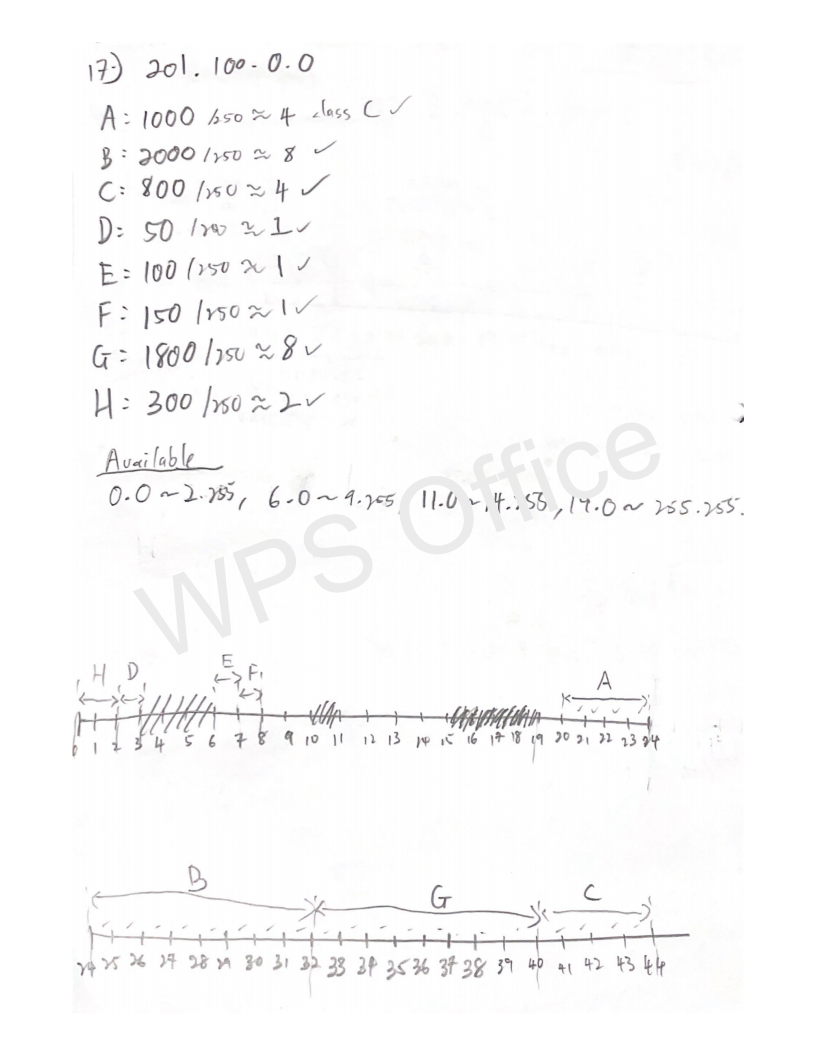 17) 201.100.0.0
A: 1000 /250 ≈ 4 class C ✓
B: 2000 /250 ≈ 8 ✓
C: 800 /250 ≈ 4 ✓
D: 50 /250 ≈ 1 ✓
E: 100 /250 ≈ 1 ✓
F: 150 /250 ≈ 1 ✓
G: 1800 /250 ≈ 8 ✓
H: 300 /250 ≈ 2 ✓
Available
0.0 ~ 2.255, 6.0 ~ 9.255, 11.0 ~ 14.255, 19.0 ~ 255.255.
WPS Office
H D E F A
0 1 2 3 4 5 6 7 8 9 10 11 12 13 14 15 16 17 18 19 20 21 22 23 24
B G C
24 25 26 27 28 29 30 31 32 33 34 35 36 37 38 39 40 41 42 43 44